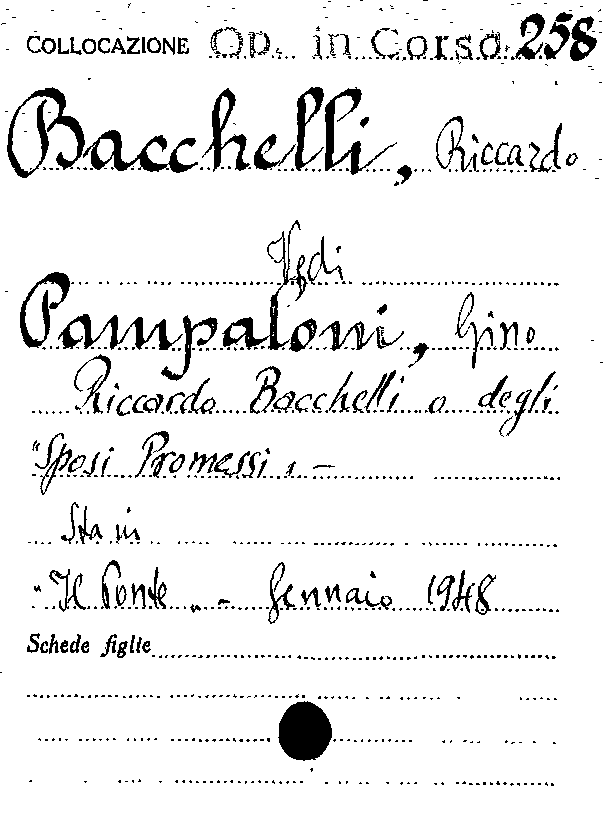 COLLOCAZIONE Op. in Corso 258
Bacchelli, Riccardo
Vedi
Pampaloni, Gino
Riccardo Bacchelli o degli
"Sposi Promessi". -
Sta in
"Il Ponte" - Gennaio 1948
Schede figlie